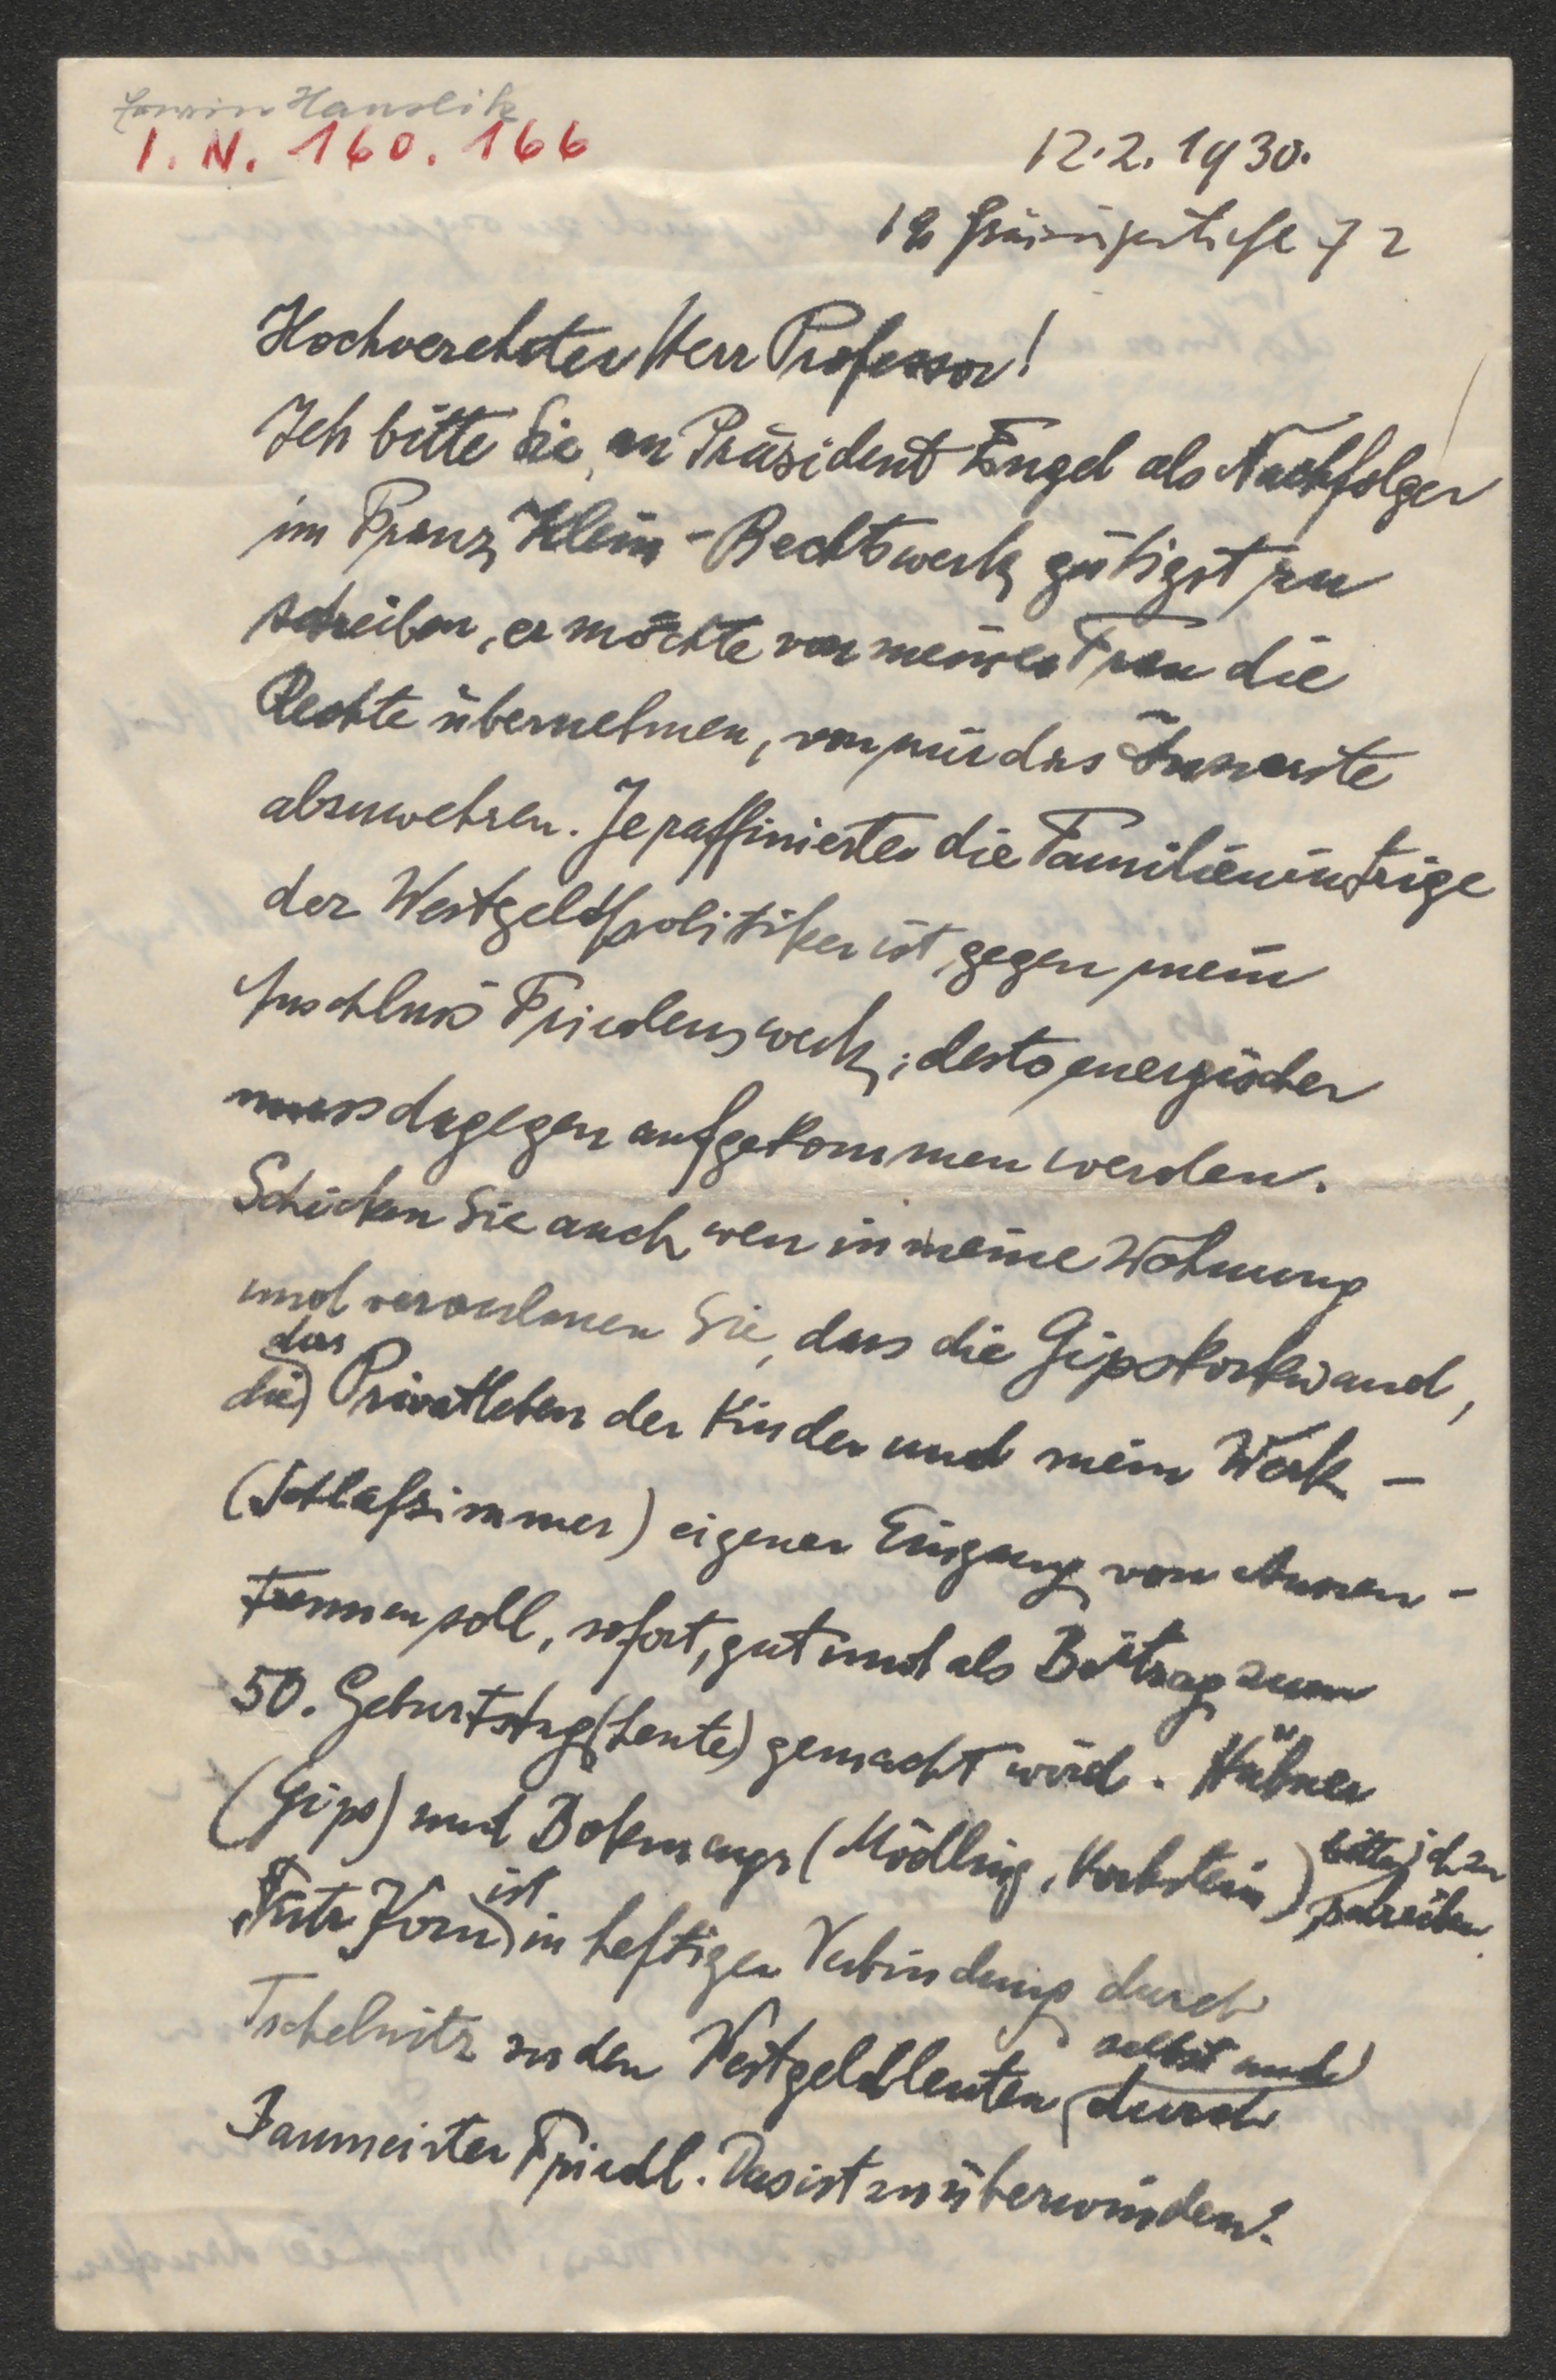 Erwin Hanslik
I. N. 160.166
12.2.1930.
72
Hochverehrter Herr Professor!
Ich bitte Sie, an Präsident Engel als Nachfolger
im Franz Klein-Rechtswerk gütigst zu
schreiben, er möchte von meiner Frau die
Rechte übernehmen, von mir das
abzuwehren. Je raffinierter die Familienintrige
der Westgeldpolitiker ist, gegen mein
Anschluss Friedenswerk, desto energischer
muss dagegen aufgekommen werden.
Schicken Sie auch wen in meine Wohnung
und Sie, dass die Gipskorkwand,
das
die Privatleben der Kinder und mein Werk -
(Schlafzimmer) eigener Eingang von -
trennen soll, sofort, gut und als Beitrag zum
50. Geburtstag (heute) gemacht wird. Hübner
(Gips) und (Mödling, Korkstein) bitte ich zu
schreiben.
ist
in heftiger Verbindung durch
Tschelnitz zu den Westgeldleuten, durch
selbst und
Baumeister Friedl. Das ist zu überwinden.